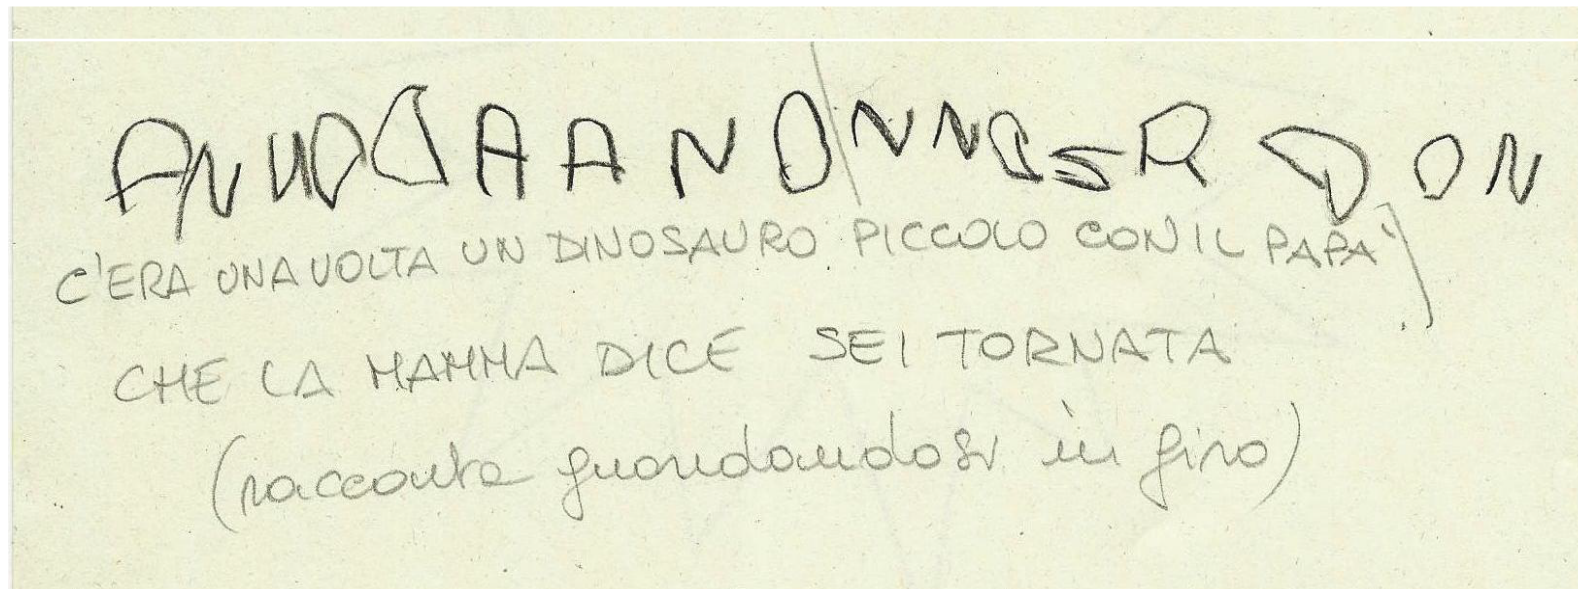 C'ERA UNA VOLTA UN DINOSAURO PICCOLO CON IL PAPÀ
CHE LA MAMMA DICE SEI TORNATA
(racconta guardandosi in giro)